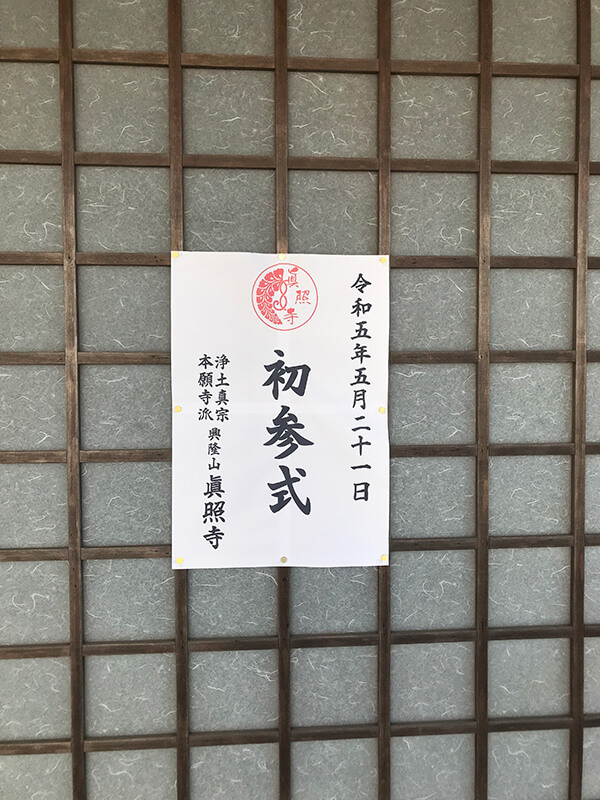 令和五年五月二十一日
眞照寺
初参式
浄土真宗
本願寺派
興隆山 眞照寺